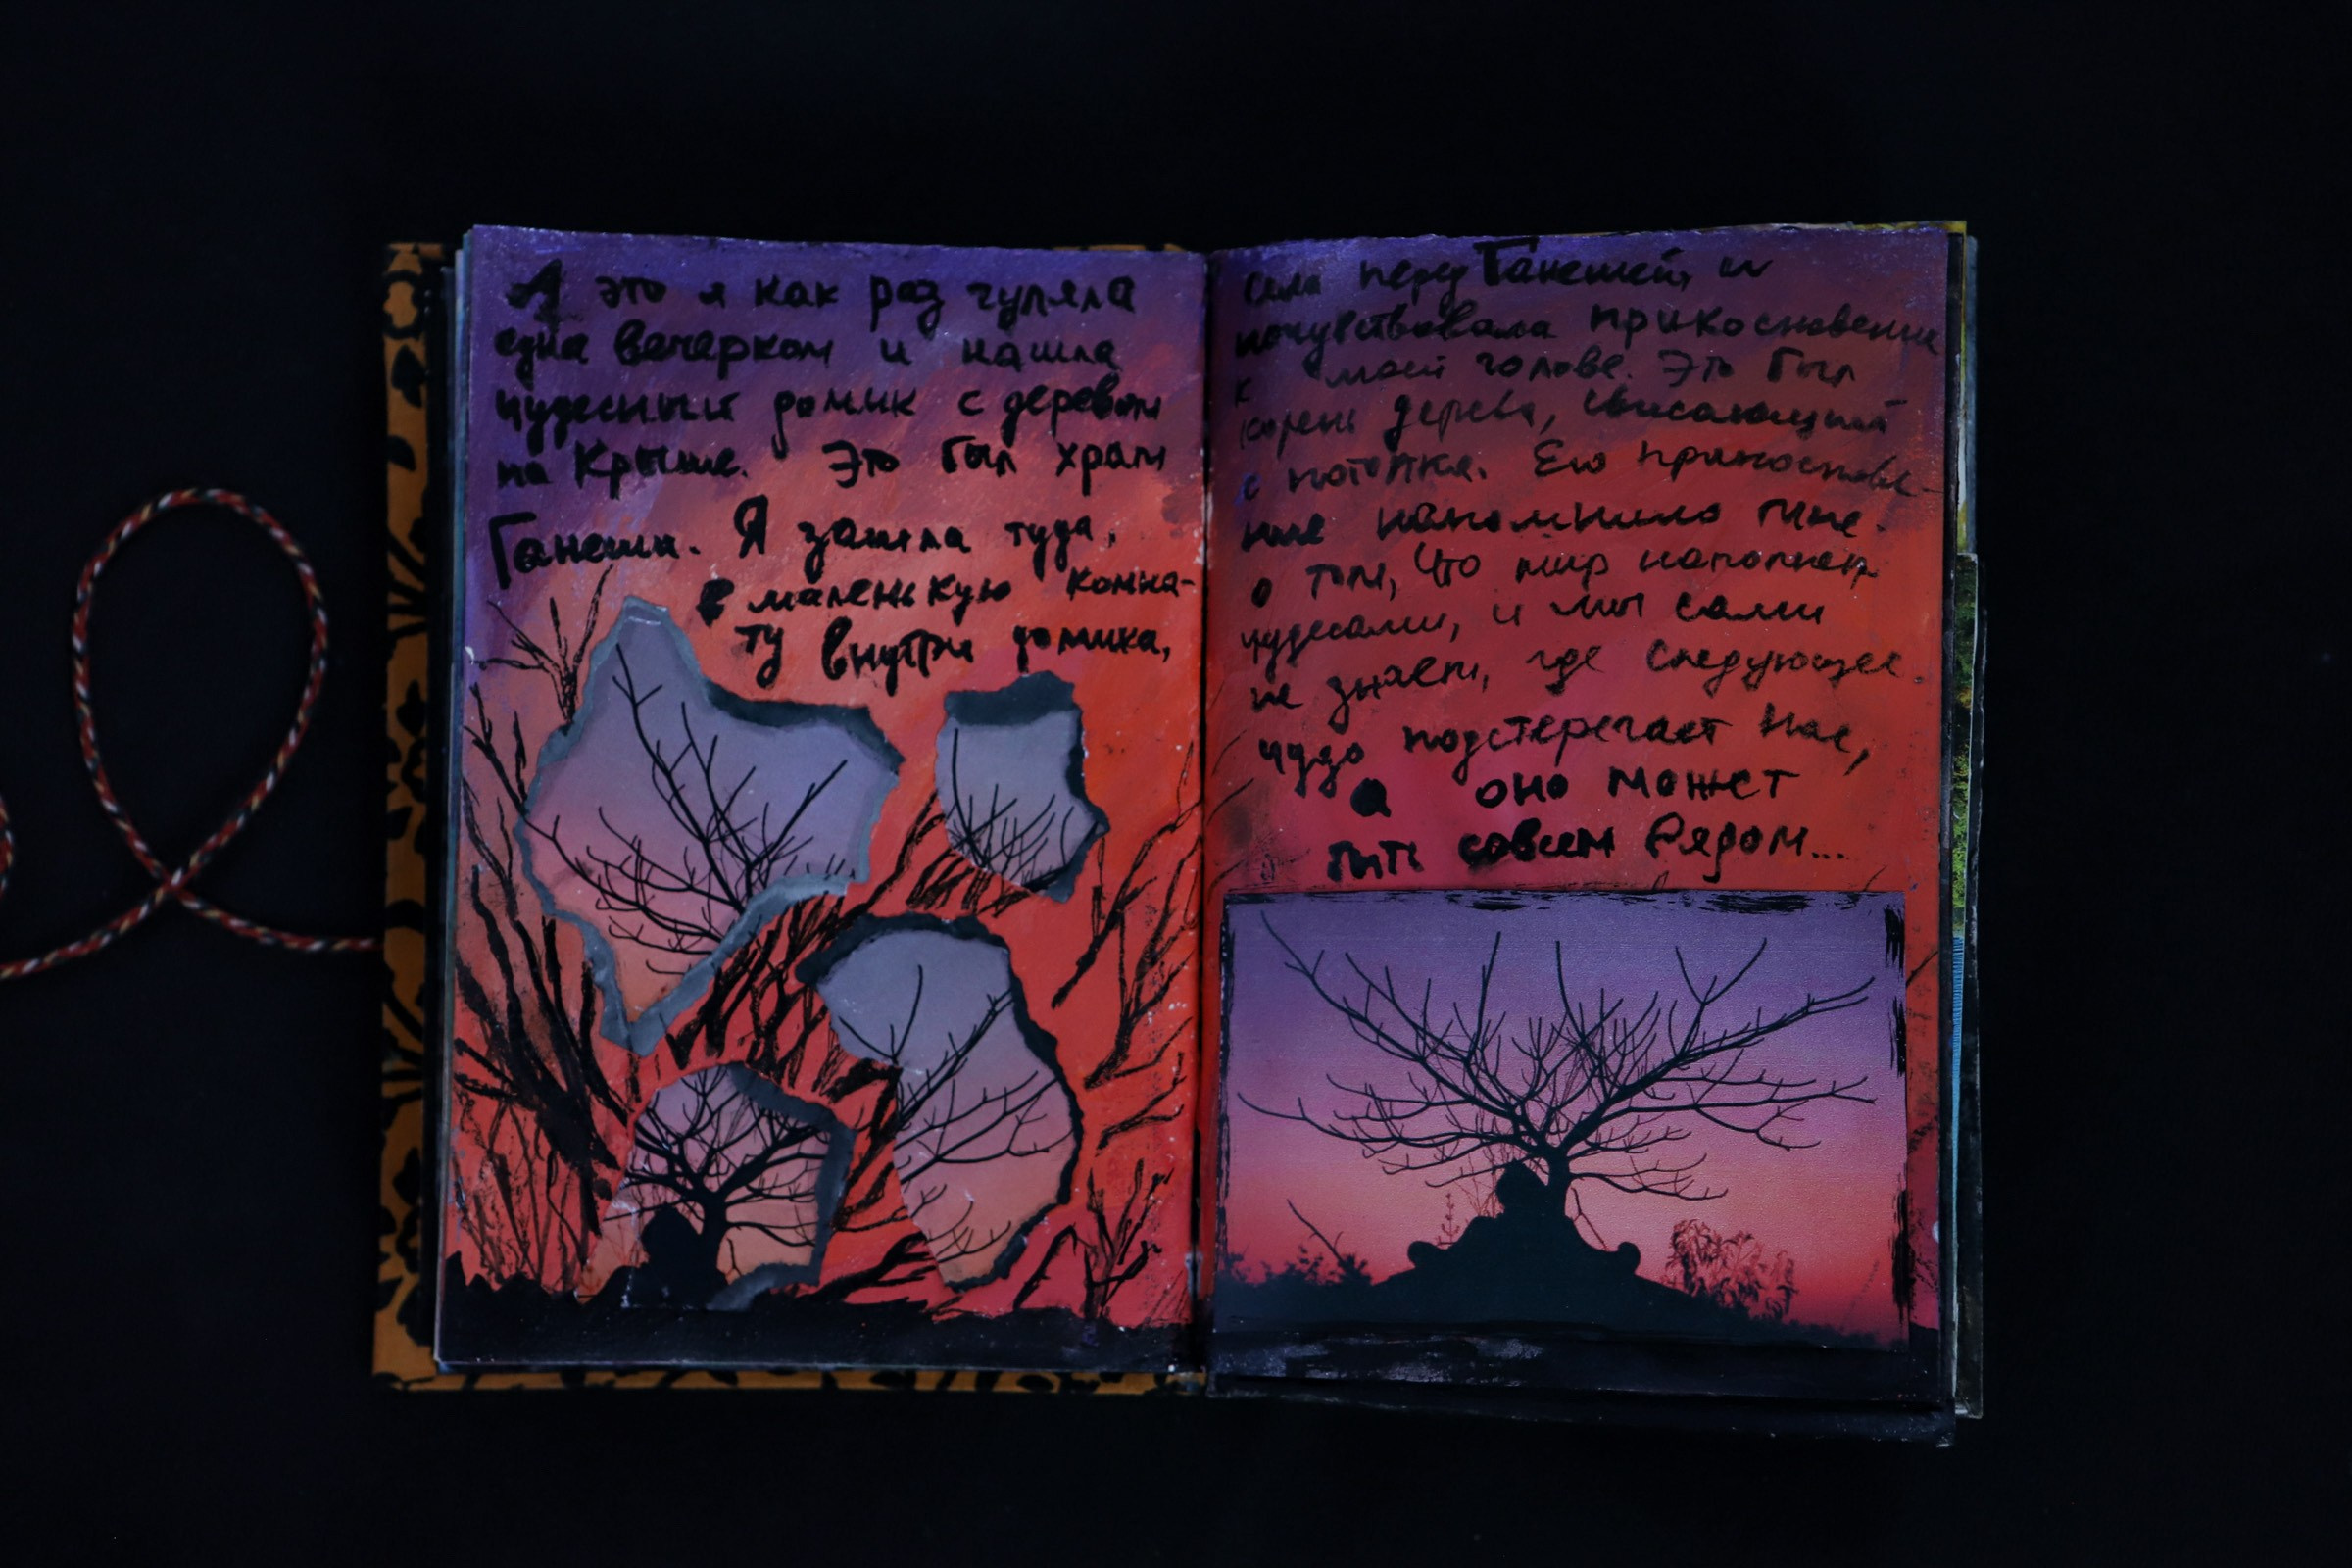 А это я как раз гуляла
одна вечерком и нашла
чудесный домик с деревом
на крыше. Это был храм
Ганеши. Я зашла туда,
в маленькую комна-
ту внутри домика,
села перед Ганешей, и
почувствовала прикосновение
к моей голове. Это был
корень дерева, свисающий
с потолка. Его прикоснове-
ние напомнило мне
о том, что мир наполнен
чудесами, и мы сами
не знаем, где следующее
чудо подстерегает нас,
а оно может
быть совсем рядом...